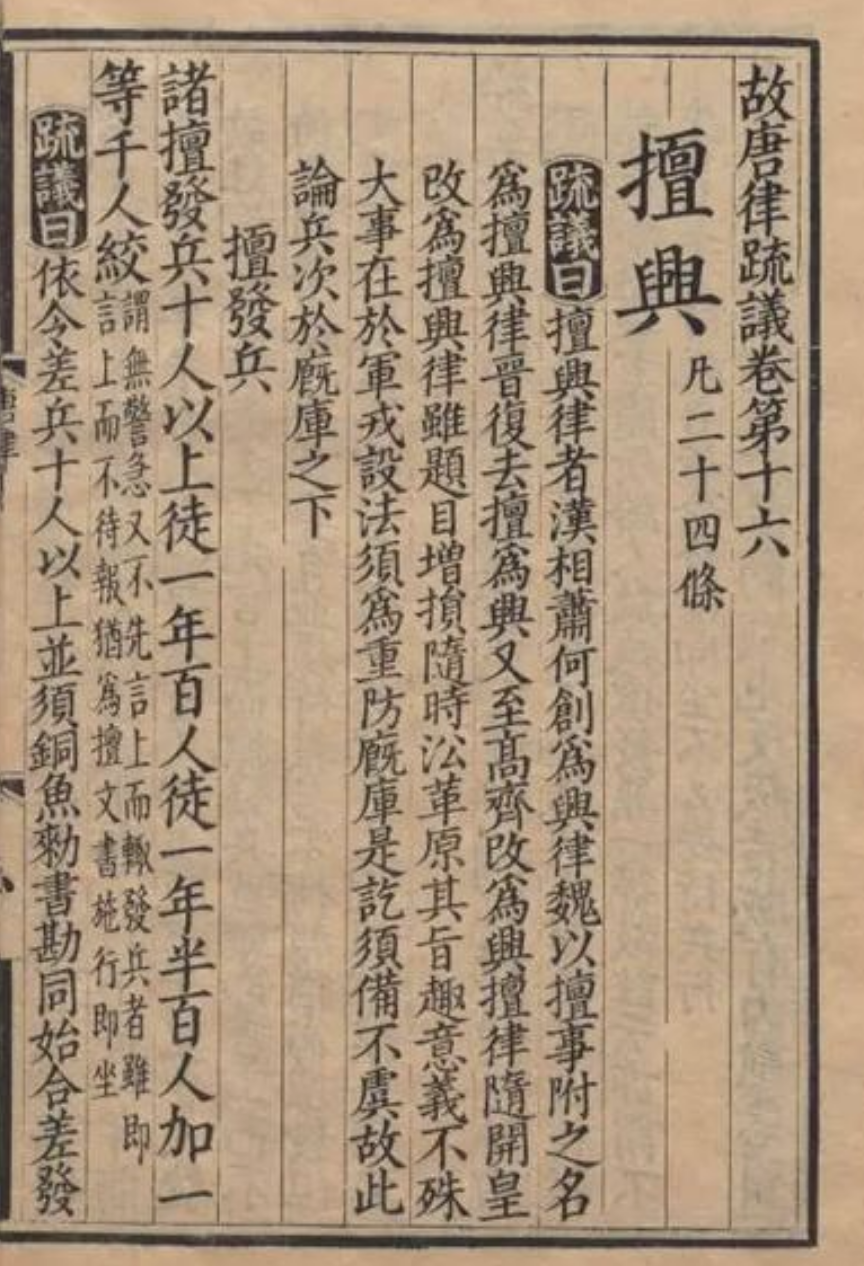 故唐律疏議卷第十六
擅興 凡二十四條
疏議曰擅興律者漢相蕭何創爲興律魏以擅事附之名
爲擅興律晉復去擅爲興又至高齊改爲興擅律隨開皇
改爲擅興律雖題目增損隨時沿革原其旨趣意義不殊
大事在於軍戎設法須爲重防廐庫是訖須備不虞故此
論兵次於廐庫之下
擅發兵
諸擅發兵十人以上徒一年百人徒一年半百人加一
等千人絞
謂無警急又不先言上而輙發兵者雖即
言上而不待報猶爲擅文書施行即坐
疏議曰依令差兵十人以上並須銅魚勑書勘同始合差發